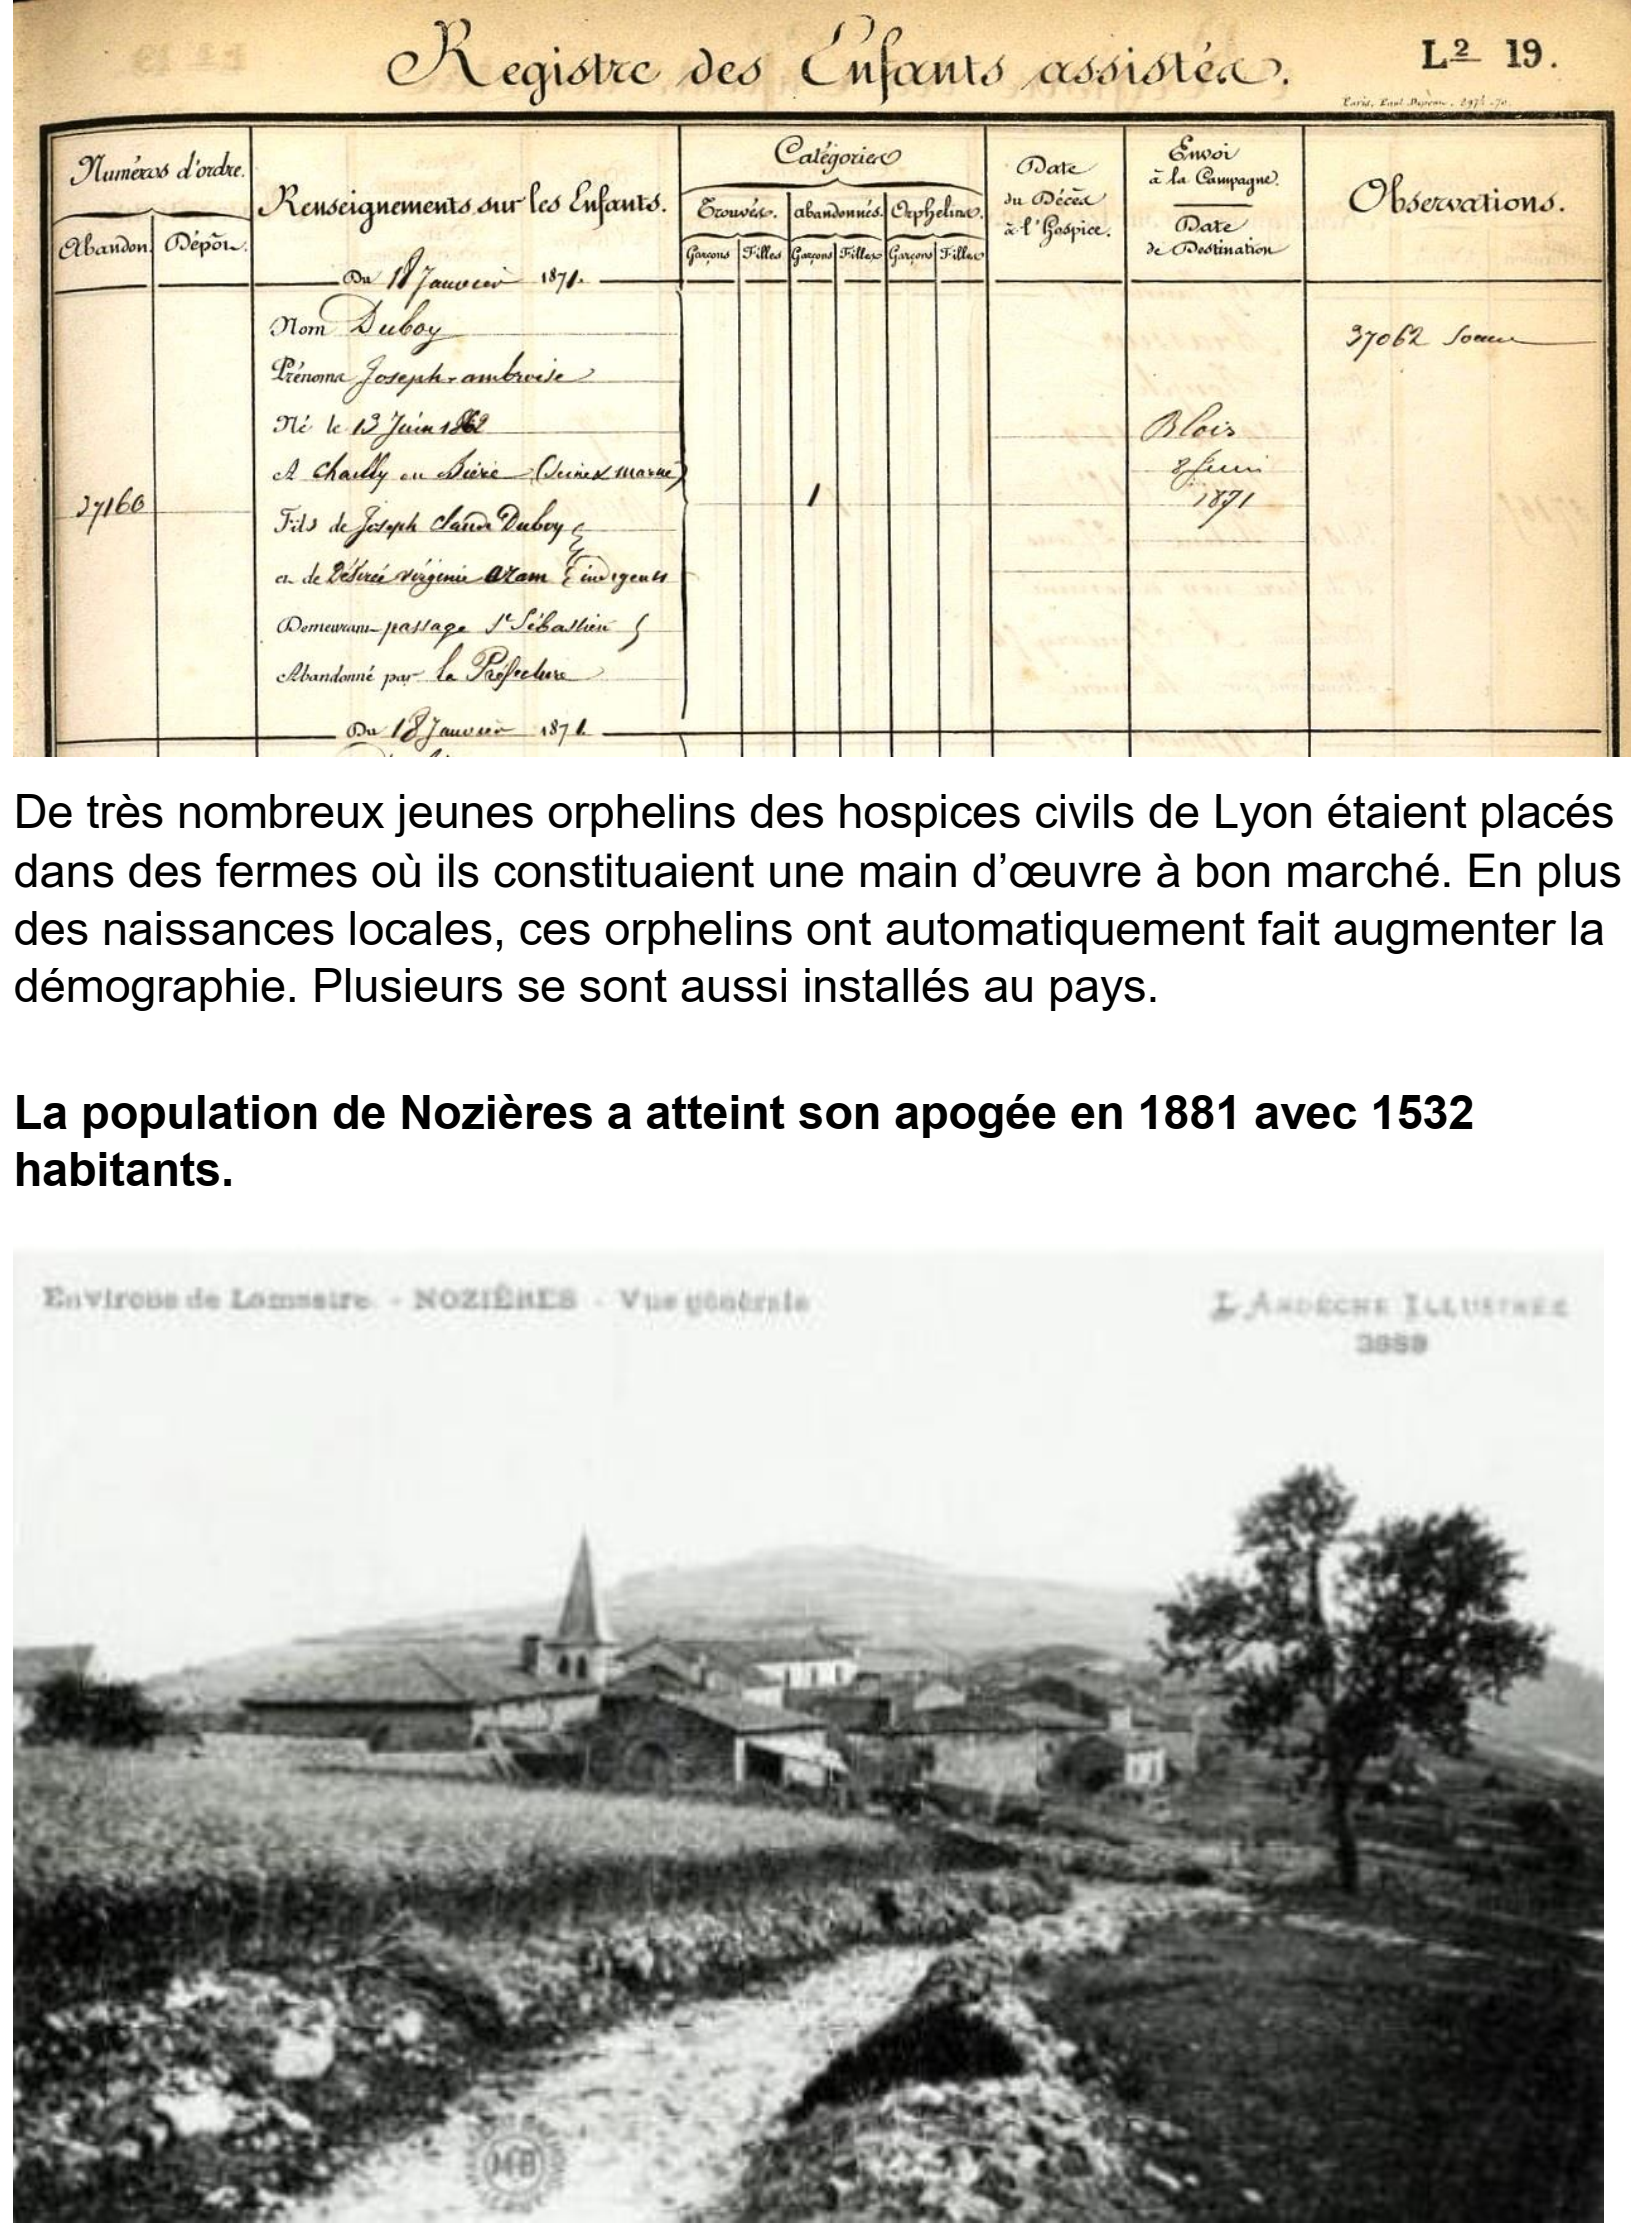 Registre des Enfants assistés.
L² 19.
Paris, Paul Dupont.
Numéros d'ordre.
Abandon. Dépôt.
Renseignements sur les Enfants.
Catégories
Trouvés. abandonnés. Orphelins.
Garçons Filles Garçons Filles Garçons Filles
Date du Décès à l'Hospice.
Envoi à la Campagne.
Date de Destination
Observations.
Du 18 Janvier 1871.
Nom Duboy
37062 Soeur
Prénoms Joseph-ambroise
Né le 13 Juin 1862
Blois
A Chailly en Bière (Seine & marne)
8 Juin
27160
1
1871
Fils de Joseph Claude Duboy
et de Désirée virginie Azam indigents
Demeurant passage St Sébastien
Abandonné par la Préfecture
Du 18 Janvier 1871.
De très nombreux jeunes orphelins des hospices civils de Lyon étaient placés
dans des fermes où ils constituaient une main d’œuvre à bon marché. En plus
des naissances locales, ces orphelins ont automatiquement fait augmenter la
démographie. Plusieurs se sont aussi installés au pays.
La population de Nozières a atteint son apogée en 1881 avec 1532
habitants.
Environs de Lamastre - NOZIÈRES - Vue générale
L'ARDÈCHE ILLUSTRÉE
MB